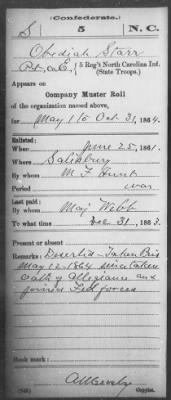 (Confederate.)
S 5 N.C.
Obediah Starr
Pvt, Co. E, 5 Reg't North Carolina Inf.
(State Troops.)
Appears on
Company Muster Roll
of the organization named above,
for May 1 to Oct. 31, 1864.
Enlisted:
When June 25, 1861.
Where Salisbury
By whom M. F. Hunt
Period war
Last paid:
By whom Maj. Webb
To what time Dec 31, 1863.
Present or absent
Remarks: Deserted - Taken Pris
May 12-1864 since taken
oath of Allegiance and
joined Fed forces
Book mark:
Copyist.